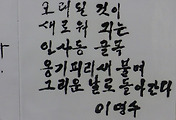 오래된 것이
새로워 지는
인사동 골목
옹기피리새 불며
그리운 날로 돌아간다
이영수